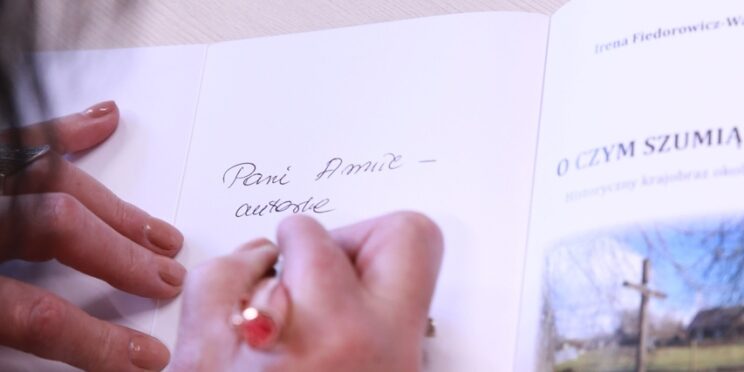 Pani Annie –
autorka
Irena Fiedorowicz-Wa
O CZYM SZUMIĄ
Historyczny krajobraz okol